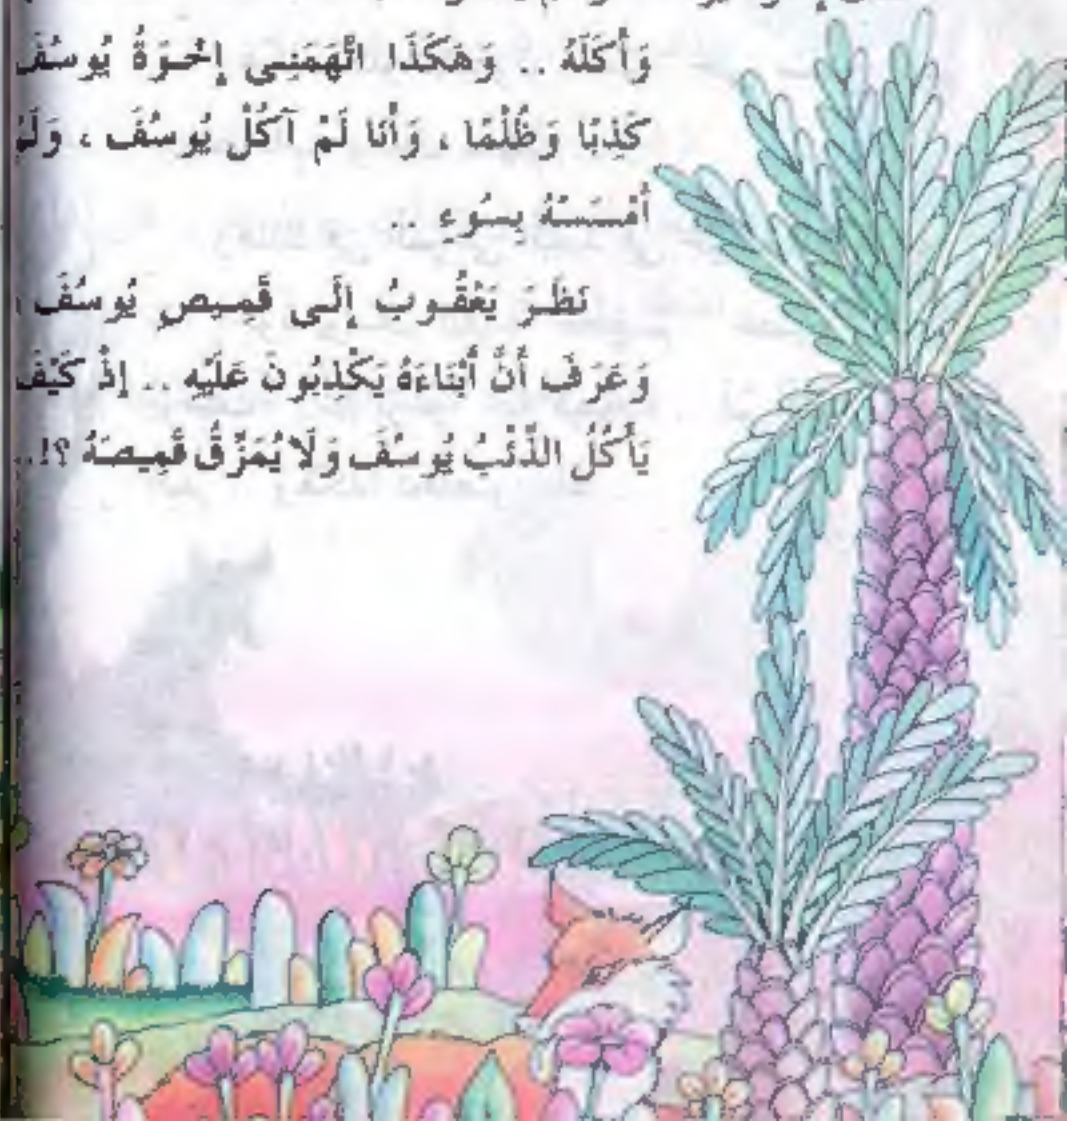 وَأَكَلَهُ .. وَهَكَذَا اتَّهَمَنِى إِخْوَةُ يُوسُفَ
كَذِبًا وَظُلْمًا ، وَأَنَا لَمْ آكُلْ يُوسُفَ ، وَلَمْ
أَمْسَسْهُ بِسُوءٍ ..
نَظَرَ يَعْقُوبُ إِلَى قَمِيصِ يُوسُفَ ،
وَعَرَفَ أَنَّ أَبْنَاءَهُ يَكْذِبُونَ عَلَيْهِ .. إِذْ كَيْفَ
يَأْكُلُ الذِّئْبُ يُوسُفَ وَلَا يُمَزِّقُ قَمِيصَهُ ؟!..